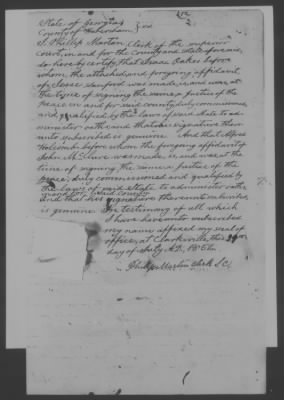 State of Georgia
County of Habersham
I, Phillip Martin Clerk of the superior
court, in and for the County and state aforesaid,
do hereby certify that Isaac Oakes before
whom the attached and foregoing affidavit
of Jesse Sanford was made, is and was at
the time of signing the same a justice of the
Peace in and for said county duly commissioned
and qualified by the laws of said State to ad-
minister oaths and that his signature there
unto subscribed is genuine. And that Alfred
Holcomb before whom the foregoing affidavit of
John McClure was made is and was at the
time of signing the same a justice of the
peace, duly commissioned and qualified by
the laws of said State to administer oaths
in and for said County
and that his signature thereunto subscribed
is genuine. In testimony of all which
I have hereunto subscribed
my name affixed my seal of
office, at Clarksville, this
day of July A.D., 1856.
Phillip Martin Clerk S.C.